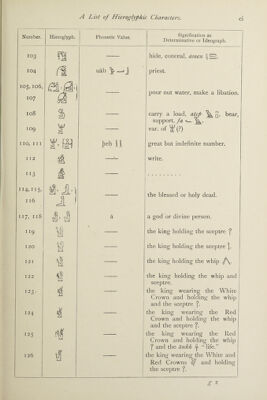 A List of Hieroglyphic Characters.
ci
Number. Hieroglyph. Phonetic Value. Signification as Determinative or Ideograph.
103 hide, conceal.
104 uāb priest.
105, 106, 107 pour out water, make a libation.
108 carry a load, bear, support.
109 var. of (?)
110, 111 ḥeḥ great but indefinite number.
112 write.
113
114, 115, 116 the blessed or holy dead.
117, 118 a god or divine person.
119 the king holding the sceptre
120 the king holding the sceptre
121 the king holding the whip
122 the king holding the whip and sceptre.
123. the king wearing the White Crown and holding the whip and the sceptre
124 the king wearing the Red Crown and holding the whip and the sceptre
125 the king wearing the Red Crown and holding the whip and the "life."
126 the king wearing the White and Red Crowns and holding the sceptre
g 2